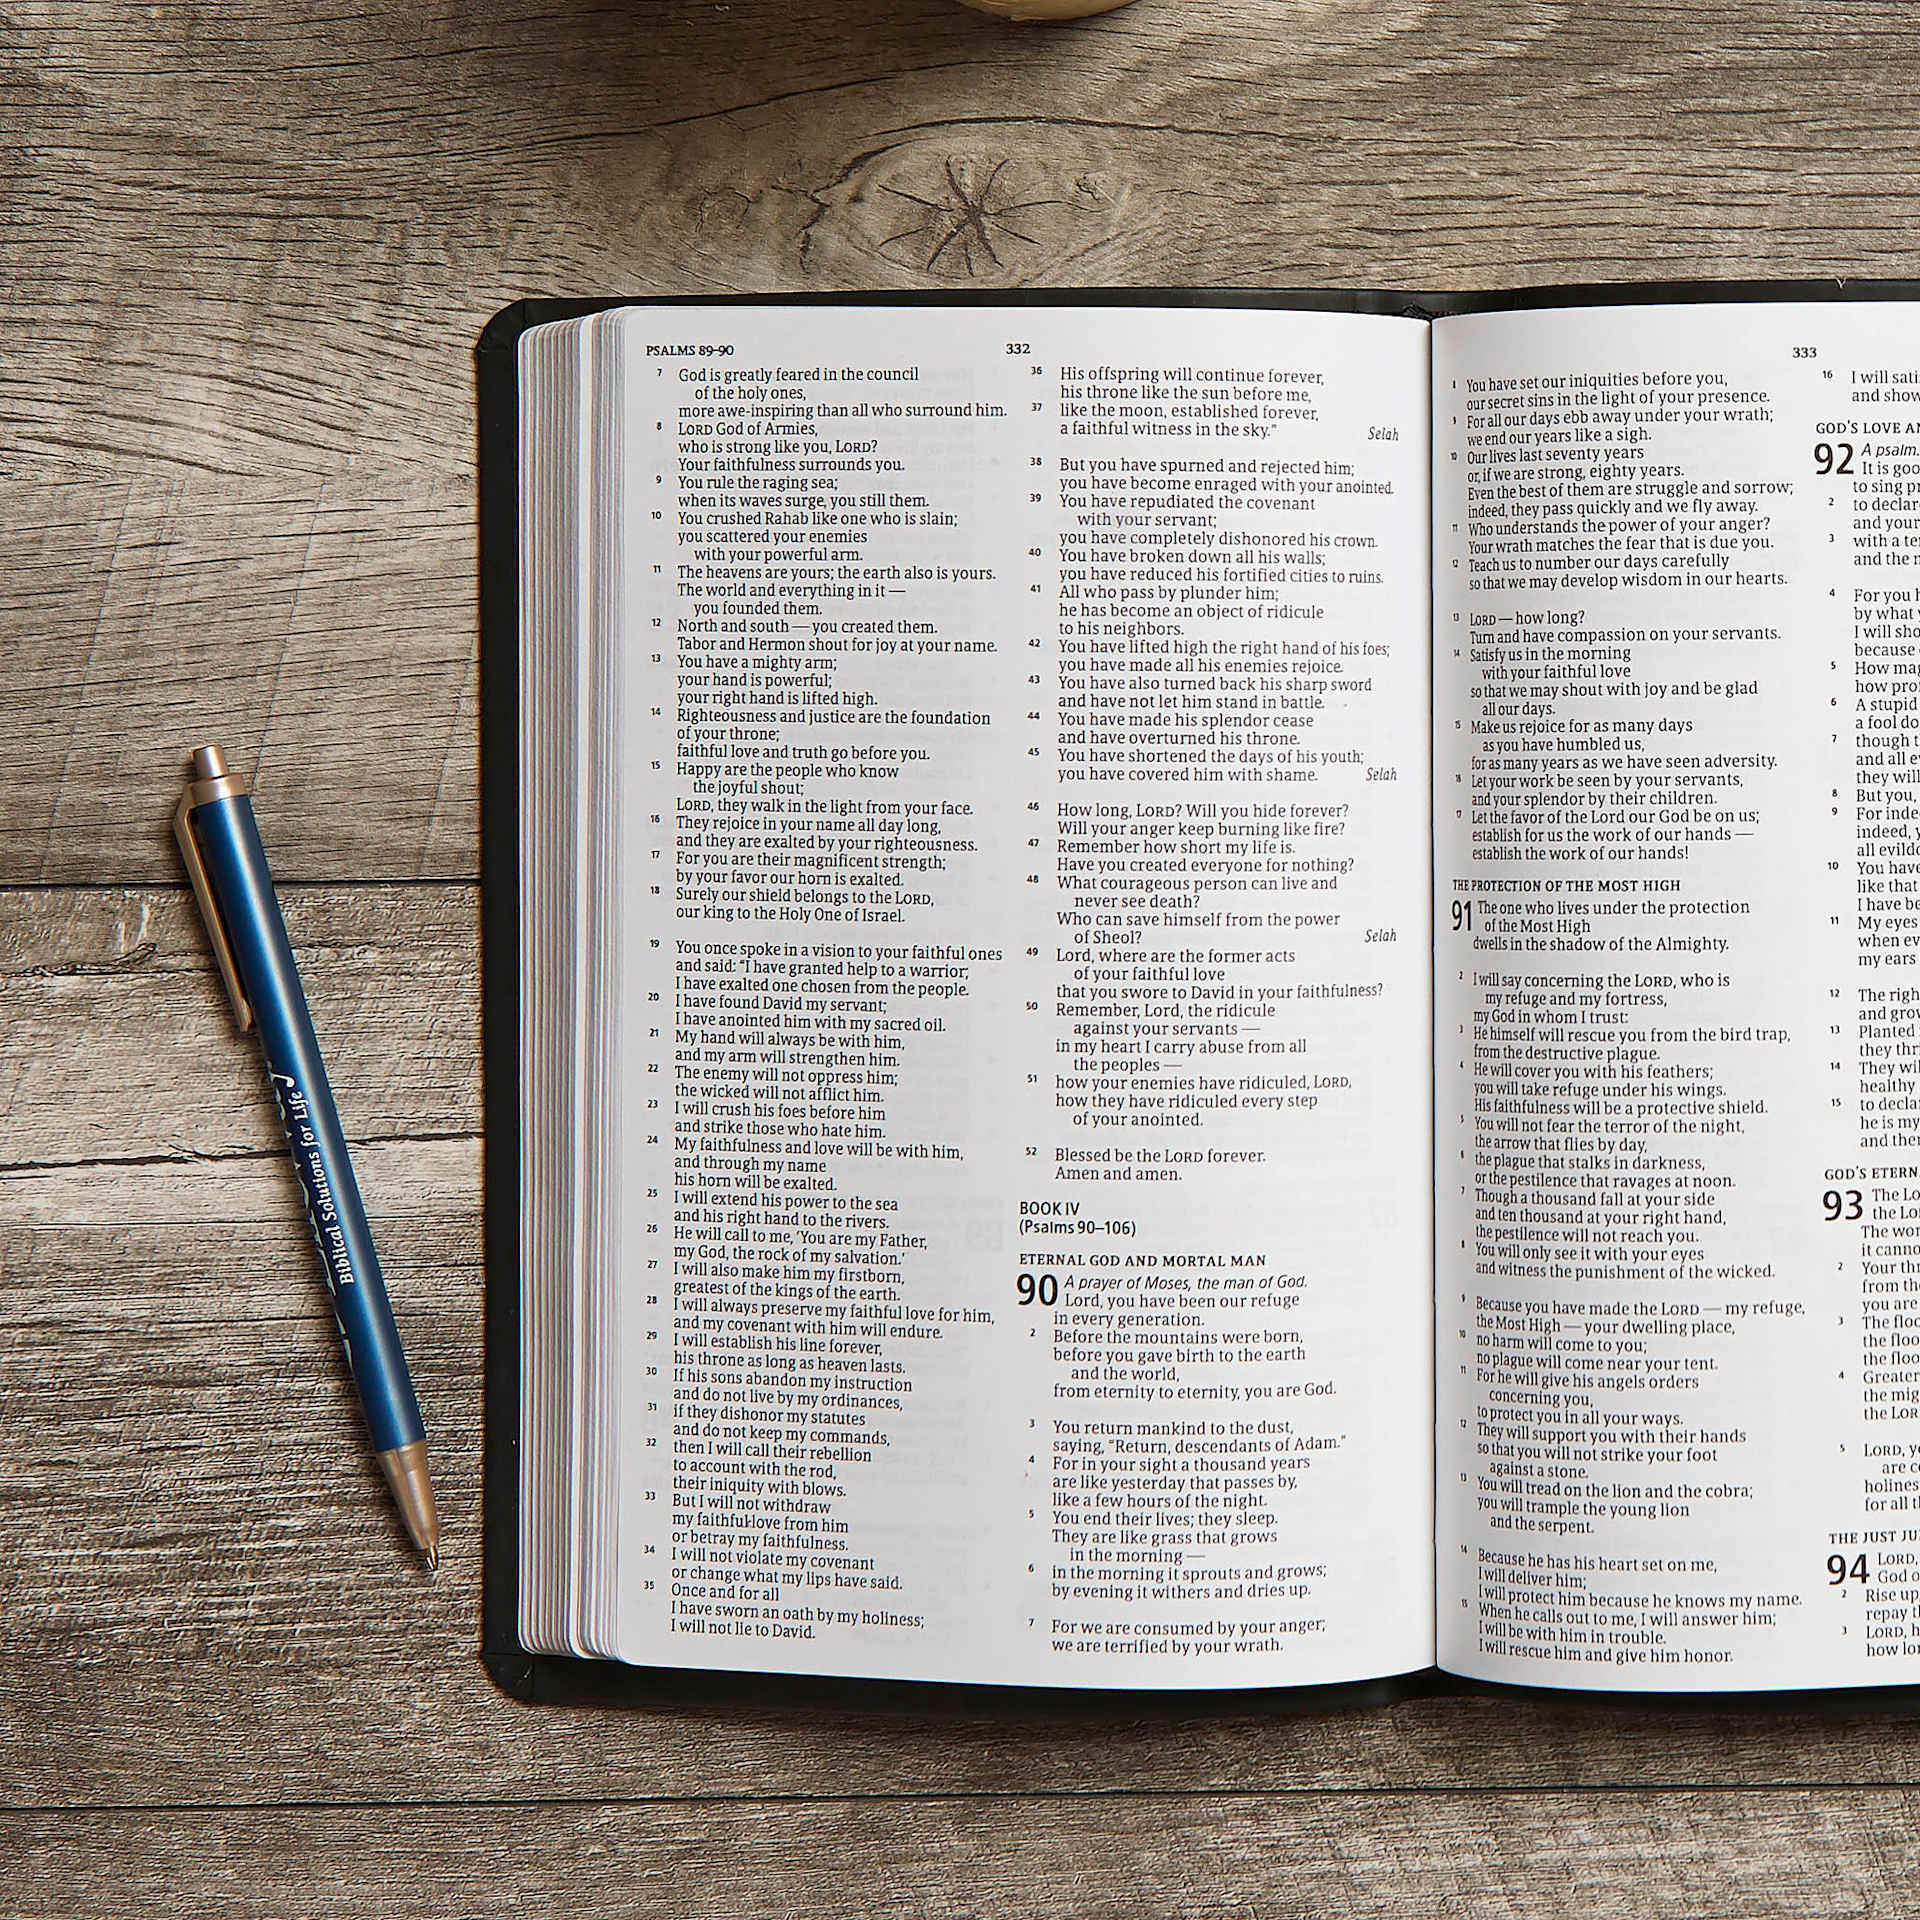 PSALMS 89-90
332
7 God is greatly feared in the council
of the holy ones,
more awe-inspiring than all who surround him.
8 LORD God of Armies,
who is strong like you, LORD?
Your faithfulness surrounds you.
9 You rule the raging sea;
when its waves surge, you still them.
10 You crushed Rahab like one who is slain;
you scattered your enemies
with your powerful arm.
11 The heavens are yours; the earth also is yours.
The world and everything in it —
you founded them.
12 North and south — you created them.
Tabor and Hermon shout for joy at your name.
13 You have a mighty arm;
your hand is powerful;
your right hand is lifted high.
14 Righteousness and justice are the foundation
of your throne;
faithful love and truth go before you.
15 Happy are the people who know
the joyful shout;
LORD, they walk in the light from your face.
16 They rejoice in your name all day long,
and they are exalted by your righteousness.
17 For you are their magnificent strength;
by your favor our horn is exalted.
18 Surely our shield belongs to the LORD,
our king to the Holy One of Israel.
19 You once spoke in a vision to your faithful ones
and said: “I have granted help to a warrior;
I have exalted one chosen from the people.
20 I have found David my servant;
I have anointed him with my sacred oil.
21 My hand will always be with him,
and my arm will strengthen him.
22 The enemy will not oppress him;
the wicked will not afflict him.
23 I will crush his foes before him
and strike those who hate him.
24 My faithfulness and love will be with him,
and through my name
his horn will be exalted.
25 I will extend his power to the sea
and his right hand to the rivers.
26 He will call to me, ‘You are my Father,
my God, the rock of my salvation.’
27 I will also make him my firstborn,
greatest of the kings of the earth.
28 I will always preserve my faithful love for him,
and my covenant with him will endure.
29 I will establish his line forever,
his throne as long as heaven lasts.
30 If his sons abandon my instruction
and do not live by my ordinances,
31 if they dishonor my statutes
and do not keep my commands,
32 then I will call their rebellion
to account with the rod,
their iniquity with blows.
33 But I will not withdraw
my faithful love from him
or betray my faithfulness.
34 I will not violate my covenant
or change what my lips have said.
35 Once and for all
I have sworn an oath by my holiness;
I will not lie to David.
36 His offspring will continue forever,
his throne like the sun before me,
37 like the moon, established forever,
a faithful witness in the sky.” Selah
38 But you have spurned and rejected him;
you have become enraged with your anointed.
39 You have repudiated the covenant
with your servant;
you have completely dishonored his crown.
40 You have broken down all his walls;
you have reduced his fortified cities to ruins.
41 All who pass by plunder him;
he has become an object of ridicule
to his neighbors.
42 You have lifted high the right hand of his foes;
you have made all his enemies rejoice.
43 You have also turned back his sharp sword
and have not let him stand in battle.
44 You have made his splendor cease
and have overturned his throne.
45 You have shortened the days of his youth;
you have covered him with shame. Selah
46 How long, LORD? Will you hide forever?
Will your anger keep burning like fire?
47 Remember how short my life is.
Have you created everyone for nothing?
48 What courageous person can live and
never see death?
Who can save himself from the power
of Sheol? Selah
49 Lord, where are the former acts
of your faithful love
that you swore to David in your faithfulness?
50 Remember, Lord, the ridicule
against your servants —
in my heart I carry abuse from all
the peoples —
51 how your enemies have ridiculed, LORD,
how they have ridiculed every step
of your anointed.
52 Blessed be the LORD forever.
Amen and amen.
BOOK IV
(Psalms 90–106)
ETERNAL GOD AND MORTAL MAN
90 A prayer of Moses, the man of God.
Lord, you have been our refuge
in every generation.
2 Before the mountains were born,
before you gave birth to the earth
and the world,
from eternity to eternity, you are God.
3 You return mankind to the dust,
saying, “Return, descendants of Adam.”
4 For in your sight a thousand years
are like yesterday that passes by,
like a few hours of the night.
5 You end their lives; they sleep.
They are like grass that grows
in the morning —
6 in the morning it sprouts and grows;
by evening it withers and dries up.
7 For we are consumed by your anger;
we are terrified by your wrath.
333
8 You have set our iniquities before you,
our secret sins in the light of your presence.
9 For all our days ebb away under your wrath;
we end our years like a sigh.
10 Our lives last seventy years
or, if we are strong, eighty years.
Even the best of them are struggle and sorrow;
indeed, they pass quickly and we fly away.
11 Who understands the power of your anger?
Your wrath matches the fear that is due you.
12 Teach us to number our days carefully
so that we may develop wisdom in our hearts.
13 LORD — how long?
Turn and have compassion on your servants.
14 Satisfy us in the morning
with your faithful love
so that we may shout with joy and be glad
all our days.
15 Make us rejoice for as many days
as you have humbled us,
for as many years as we have seen adversity.
16 Let your work be seen by your servants,
and your splendor by their children.
17 Let the favor of the Lord our God be on us;
establish for us the work of our hands —
establish the work of our hands!
THE PROTECTION OF THE MOST HIGH
91 The one who lives under the protection
of the Most High
dwells in the shadow of the Almighty.
2 I will say concerning the LORD, who is
my refuge and my fortress,
my God in whom I trust:
3 He himself will rescue you from the bird trap,
from the destructive plague.
4 He will cover you with his feathers;
you will take refuge under his wings.
His faithfulness will be a protective shield.
5 You will not fear the terror of the night,
the arrow that flies by day,
6 the plague that stalks in darkness,
or the pestilence that ravages at noon.
7 Though a thousand fall at your side
and ten thousand at your right hand,
the pestilence will not reach you.
8 You will only see it with your eyes
and witness the punishment of the wicked.
9 Because you have made the LORD — my refuge,
the Most High — your dwelling place,
10 no harm will come to you;
no plague will come near your tent.
11 For he will give his angels orders
concerning you,
to protect you in all your ways.
12 They will support you with their hands
so that you will not strike your foot
against a stone.
13 You will tread on the lion and the cobra;
you will trample the young lion
and the serpent.
14 Because he has his heart set on me,
I will deliver him;
I will protect him because he knows my name.
15 When he calls out to me, I will answer him;
I will be with him in trouble.
I will rescue him and give him honor.
16 I will
and show
GOD'S LOVE
92 A psalm.
It is
to sing
2 to
and your
3 with a
and the
4 For you
by what
I will
because
5 How
how
6 A stupid
a fool
7 though
and all
they will
8 But you,
9 For
indeed,
all
10 You have
like that
I have
11 My eyes
when
my ears
12 The
and
13 Planted
they
14 They
healthy
15 to
he is my
and
GOD'S
93 The
the
The
it
2 Your
from the
you are
3 The
the
the
4 Greater
the
the
5 LORD,
are
for all
THE JUST
94 LORD,
God
2 Rise up,
repay
3 LORD,
how
Biblical Solutions for Life